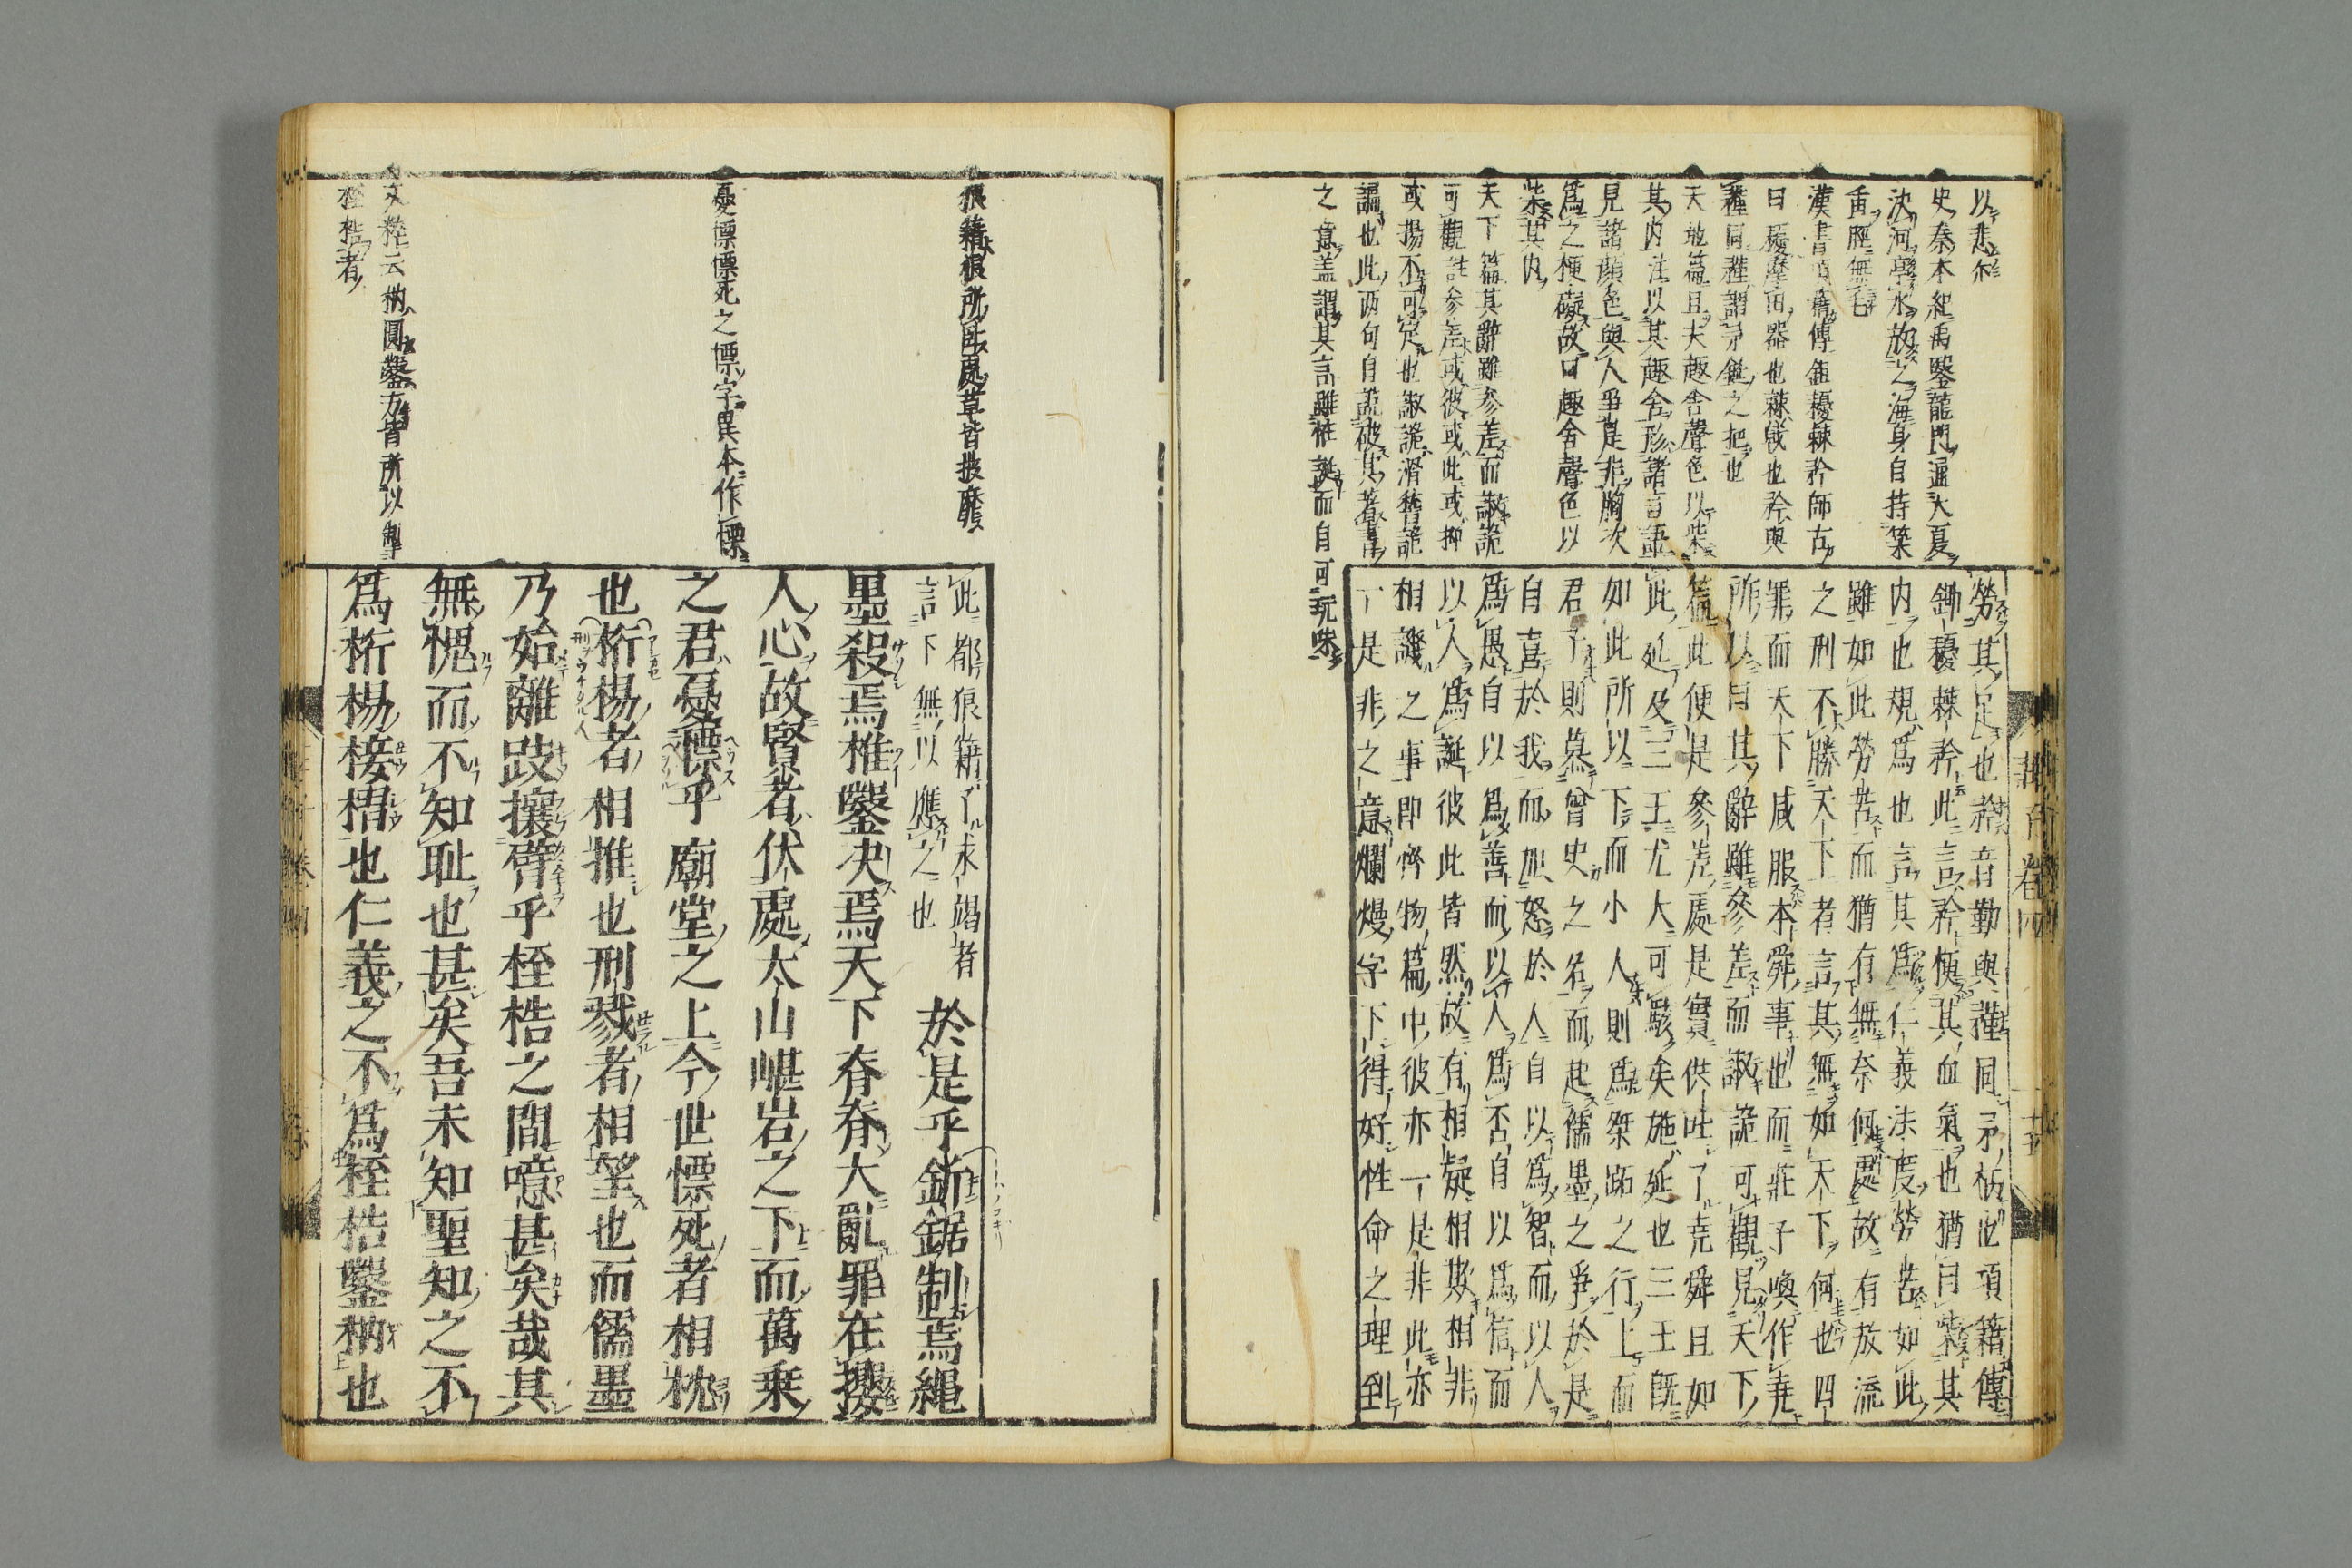 以悲尓
史秦本紀禹鑿龍門通大夏
決河亭水放之海身自持築
臿脛無毛
漢書項籍傳鉏耰棘矜師古
曰耰摩田器也棘戟也矜與
䅖同䅖謂矛鋋之把也
天地篇且夫趣舍聲色以柴
其内注以其趣舍形諸言語
見諸顔色與人爭是非胸次
爲之梗礙故曰趣舍聲色以
柴其内
天下篇其辭雖参差而諔詭
可觀註参差或彼或此或抑
或揚不可定也諔詭滑稽詭
譎也此两句自說破其著書
之意盖謂其言雖怪誕而自可玩味
勞其足也矜音勤與䅖同矛柄也項籍傳
鋤耰棘矜此言矜梗其血氣也猶曰柴其
内也規爲也言其爲仁義法度勞苦如此
雖如此勞苦而猶有無奈何處故有放流
之刑不勝天下者言其無如天下何也四
罪而天下咸服本舜事也而莊子喚作堯
所以曰其辭雖參差而諔詭可觀見天下
篇此便是參差處是實供吐了堯舜且如
此延及三王尤大可駭矣施延也三王既
如此所以下而小人則爲桀跖之行上而
君子則慕曾史之名而起儒墨之爭於是
自喜於我而加怒於人自以爲智而以人
爲愚自以爲善而以人爲否自以爲信而
以人爲誕彼此皆然故有相疑相欺相非
相譏之事即齊物篇中彼亦一是非此亦
一是非之意爛熳字下得好性命之理到
鬳齋卷四
狼籍狼所卧處草皆披靡
憂慓慓死之慓字異本作慄
文粹云枘圓鑿方皆所以制
桎梏者
此都狼籍了求竭者
言下無以應之也
於是乎釿鋸制焉繩
墨殺焉椎鑿决焉天下脊脊大亂罪在攖
人心故賢者伏處太山嵁岩之下而萬乗
之君憂慓乎廟堂之上今世慓死者相枕
也桁楊者相推也刑戮者相望也而儒墨
乃始離跂攘臂乎桎梏之間噫甚矣哉其
無愧而不知耻也甚矣吾未知聖知之不
爲桁楊椄槢也仁義之不爲桎梏鑿枘也